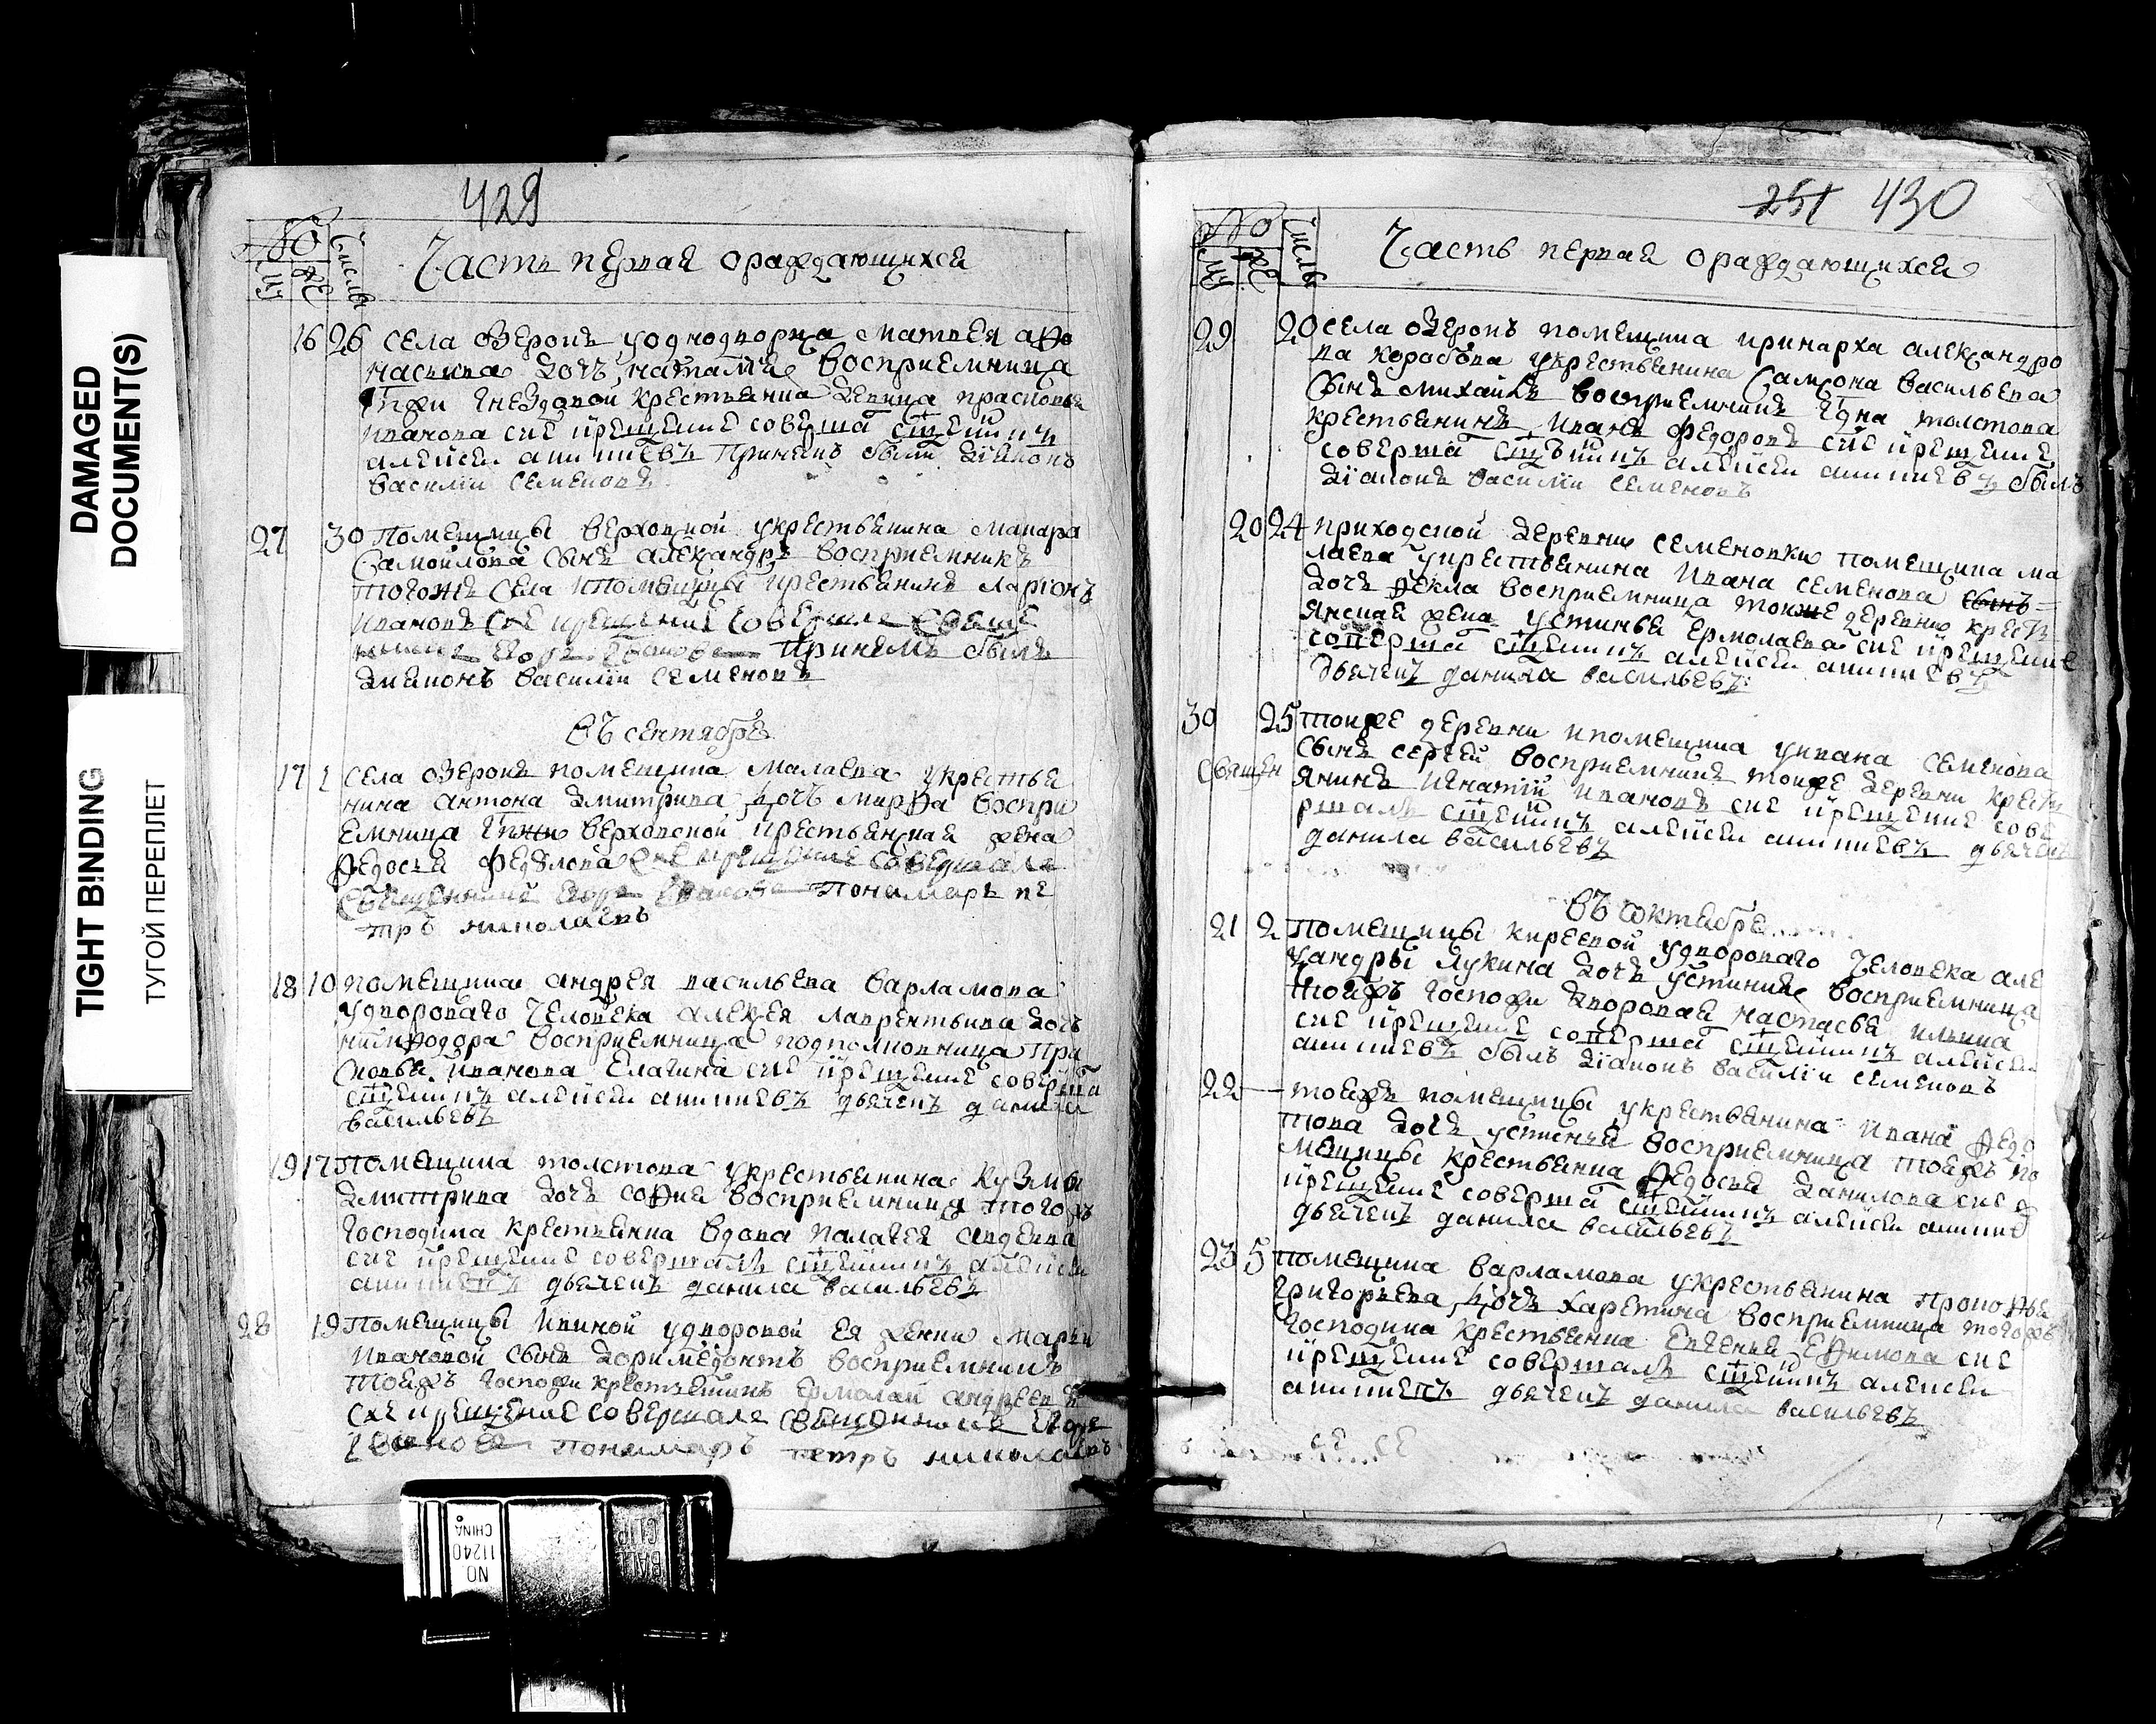 DAMAGED
DOCUMENT(S)
TIGHT BINDING
ТУГОЙ ПЕРЕПЛЕТ
429
№ Числы
Му Же
Часть первая ораждающихся
16 26 села озеронъ уоднодворца матвея афо
насьива дочь наталие восприемница
гпжи гнездовой крестьянка девица прасковья
иванова сие крещение соверша сщенникъ
алексеи аникиевъ причемъ были диаконъ
василии семеновъ
27 30 Помещицы верховской укрестьянина макара
самоилова сынъ александръ восприемникъ
тогожъ села ипомещицы крестьянинъ ларионъ
ивановъ сие крещение совершалъ
причемъ былъ
диаконъ василии семеновъ
въ сентябре
17 1 села озеронъ помещика малаева укрестья
нина антона дмитрива дочь марфа воспри
емница гпжи верховской крестьянская жена
федосья сие крещение совершалъ
священникъ пономарь пе
тръ николаевъ
18 10 помещика андрея васильева варламова
удворового человека алексея лаврентьива дочь
минфодора восприемница подполковница пра
сковья иванова елагина сие крещение соверша
сщенникъ алексеи аникиевъ дьячекъ данила
васильевъ
19 17 помещика толстова укрестьянина кузмы
дмитрива дочь софия восприемница того жъ
господина крестьянка вдова палагея авдеева
сие крещение совершалъ сщенникъ алексеи
аникиевъ дьячекъ данила васильевъ
28 19 Помещицы ивиной удворовой ея женки марьи
ивановой сынъ доримедонтъ восприемникъ
тоежъ госпожи крестьянинъ ермолаи андреевъ
сие крещение совершалъ священникъ
пономарь петръ николаевъ
251 430
№ Числы
Му Же
Часть первая ораждающихся
29 20 села озеронъ помещика иринарха александро
ва коробова укрестьянина самсона васильева
сынъ михаилъ восприемникъ гдна толстова
крестьянинъ иванъ федоровъ сие крещение
соверша сщенникъ алексеи аникиевъ былъ
диаконъ василии семеновъ
20 24 приходской деревни семеновки помещика ма
лаева укрестьянина ивана семенова сынъ
дочь фекла восприемница тоиже деревни крест
янская жена устинья ермолаева сие крещение
соверша сщенникъ алексеи аникиевъ
дьячекъ данила васильевъ
30 25 тоиже деревни ипомещика уивана семенова
сынъ сергей восприемникъ тоиже деревни крест
янинъ игнатии ивановъ сие крещение сове
ршалъ сщенникъ алексеи аникиевъ дьячекъ
данила васильевъ
священ
въ октябре
21 2 помещицы киреевой удворового человека але
ѯандры лукина дочь устиние восприемница
тоежъ госпожи дворовая настасья ильина
сие крещение соверша сщенникъ алексеи
аникиевъ былъ диаконъ василии семеновъ
22 — тоежъ помещицы укрестьянина ивана федо
това дочь устинья восприемница тоежъ по
мещицы крестьянка федосья данилова сие
крещение соверша сщенникъ алексеи аникиев
дьячекъ данила васильевъ
23 5 помещика варламова укрестьянина прокофья
григорьева дочь харетина восприемница тогожъ
господина крестьянка евгенья ефимова сие
крещение совершалъ сщенникъ алексеи
аникиевъ дьячекъ данила васильевъ
NO.
11240
CHINA